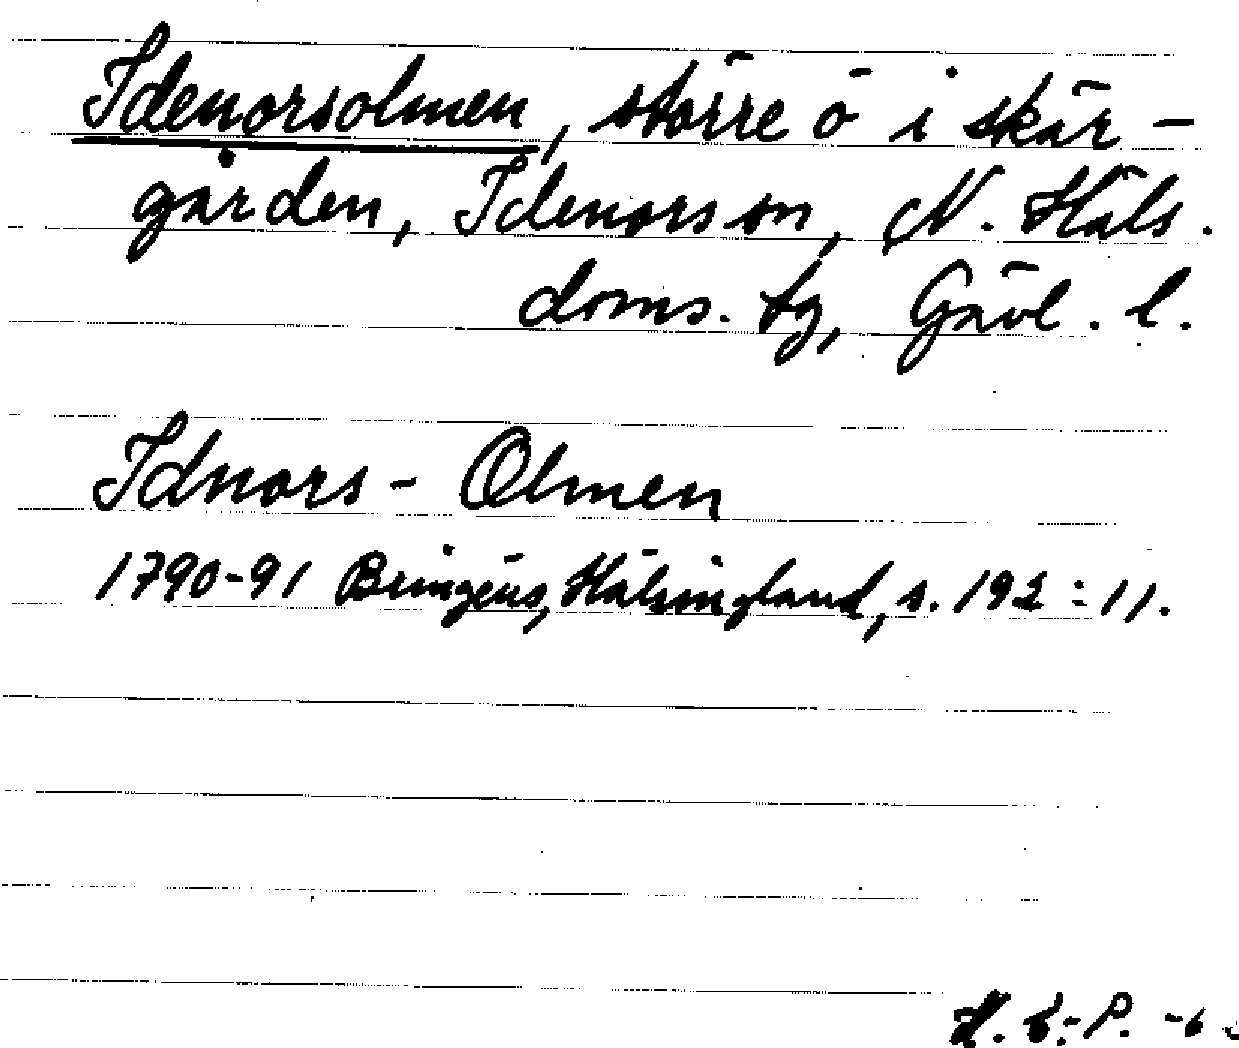 Idenorsolmen, större ö i skär-
gården, Idenors sn, N. Häls.
doms. tg, Gävl. l.
Idnors-Olmen
1790-91 Bringéus, Hälsingland, s. 192:11.